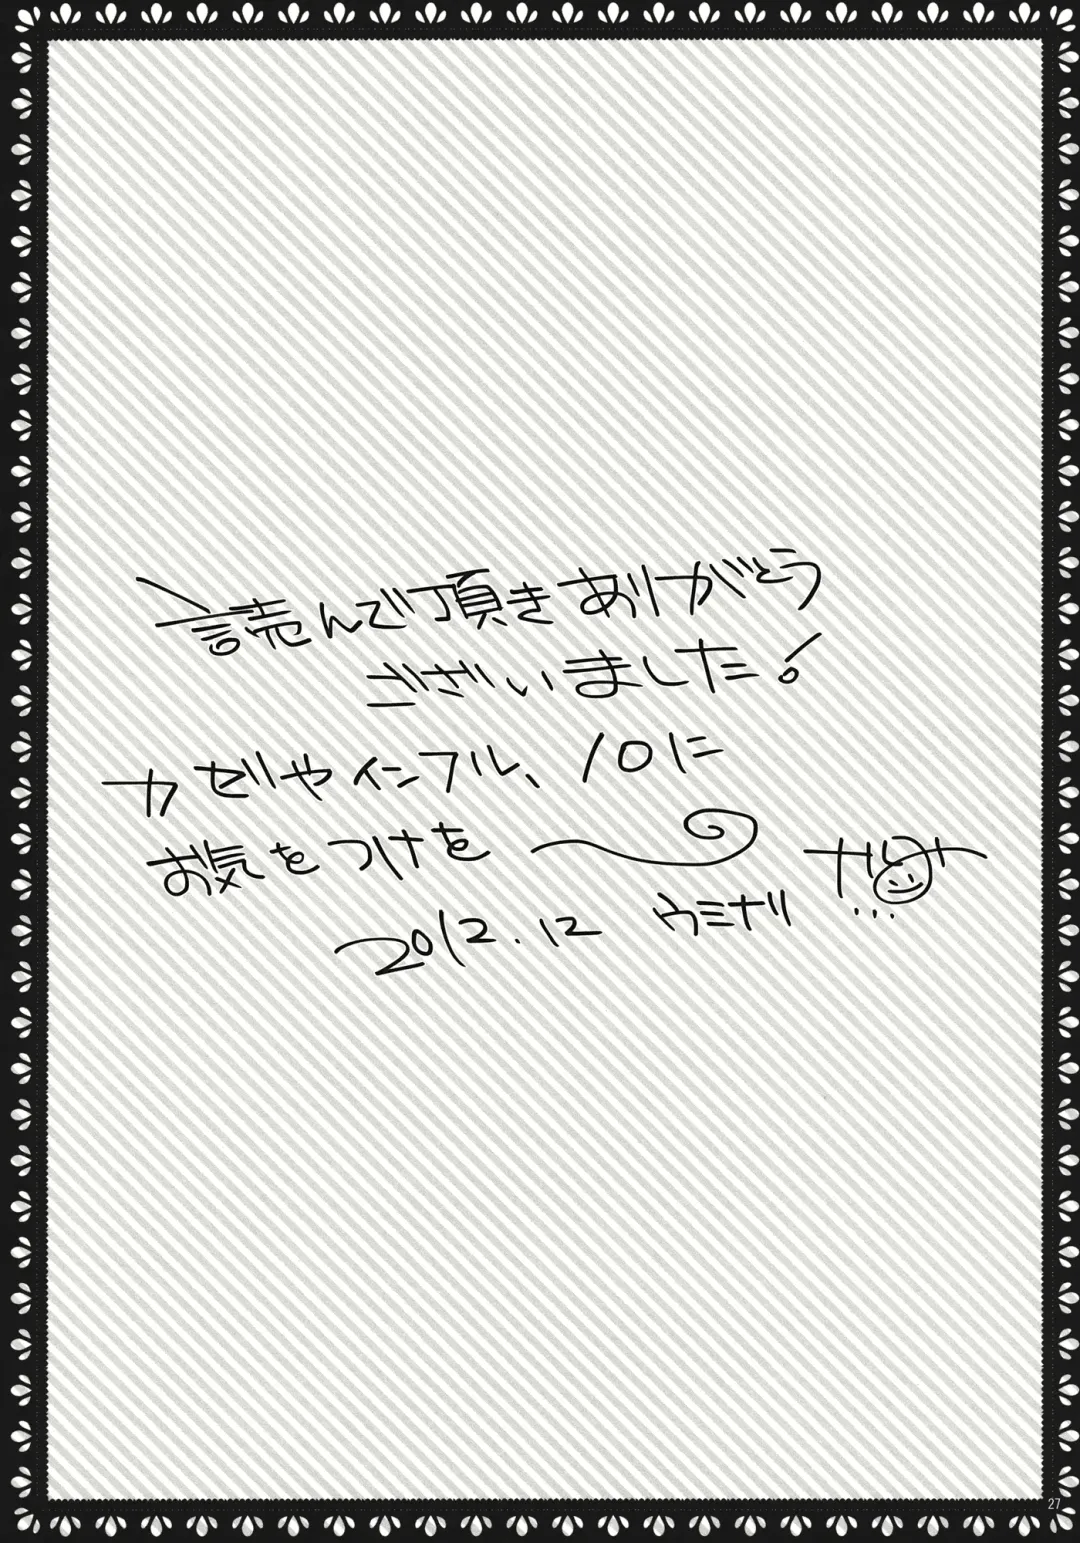 読んで頂きありがとう
ございました!
カゼやインフル、ノロに
お気をつけを
2012.12 ウミナリ
27